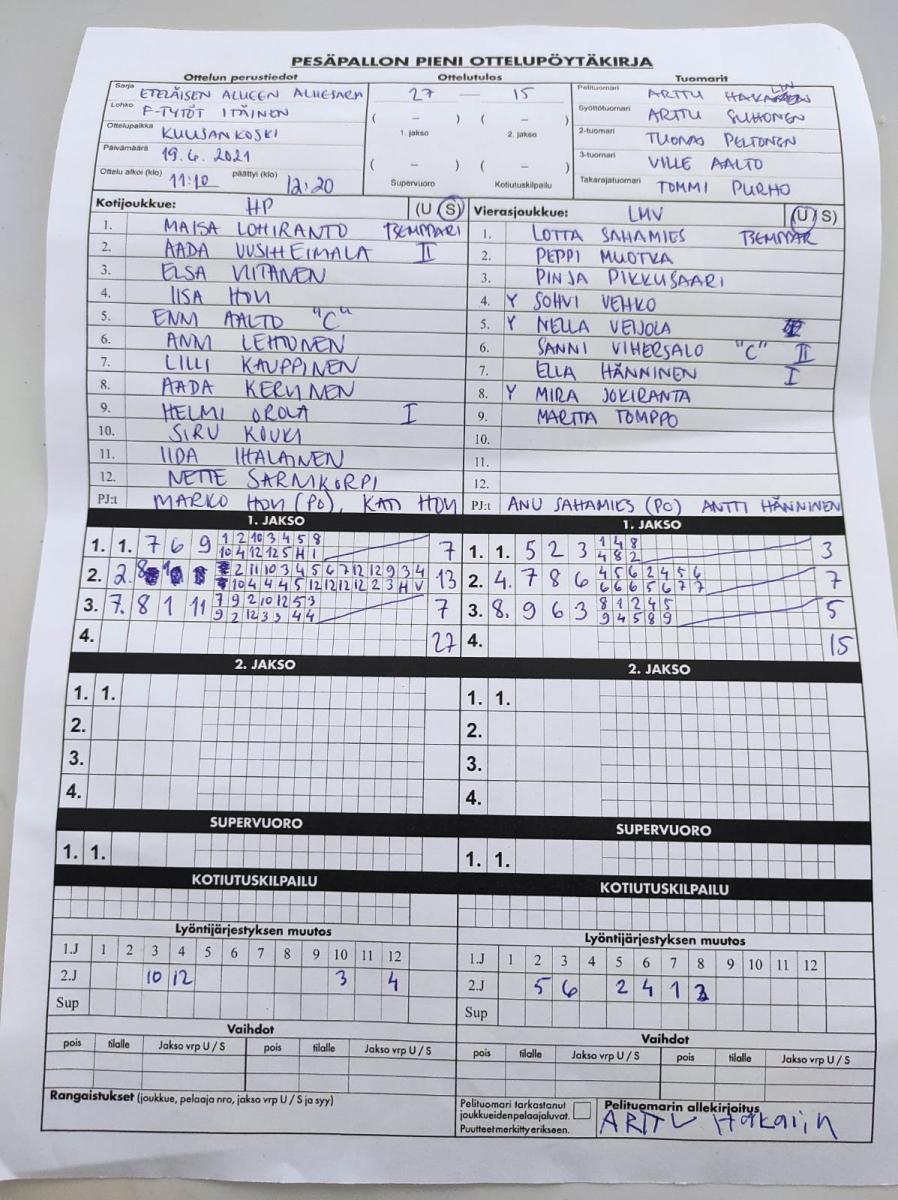 PESÄPALLON PIENI OTTELUPÖYTÄKIRJA
Ottelun perustiedot Ottelutulos Tuomarit
Sarja ETELÄISEN ALUEEN ALUESARJA
Lohko F-TYTÖT ITÄINEN
Ottelupaikka KUUSANKOSKI
Päivämäärä 19.6.2021
Ottelu alkoi (klo) 11:10 päättyi (klo) 12:20
27 — 15
( – ) ( – )
1. jakso 2. jakso
( – ) ( – )
Supervuoro Kotiutuskilpailu
Pelituomari ARTTU HAKALIN
Syöttötuomari ARTTU SUHONEN
2-tuomari TUOMAS PELTONEN
3-tuomari VILLE AALTO
Takarajatuomari TOMMI PURHO
Kotijoukkue: HP (U S)
1. MAISA LOHIRANTO TSEMPPARI
2. AADA UUSIHEIMALA II
3. ELSA VIITANEN
4. IISA HOVI
5. ENNI AALTO "C"
6. ANNI LEHTONEN
7. LILLI KAUPPINEN
8. AADA KERVINEN
9. HELMI OROLA I
10. SIRU KOUKI
11. IIDA IHALAINEN
12. NETTE SARNIKORPI
PJ:t MARKO HOVI (PO), KATI HOVI
Vierasjoukkue: LMV (U S)
1. LOTTA SAHAMIES TSEMPPAR
2. PEPPI MUOTKA
3. PINJA PIKKUSAARI
4. Y SOHVI VEHKO
5. Y NELLA VEIJOLA
6. SANNI VIHERSALO "C" II
7. ELLA HÄNNINEN I
8. Y MIRA JOKIRANTA
9. MARITA TOMPPO
10.
11.
12.
PJ:t ANU SAHAMIES (PO) ANTTI HÄNNINEN
1. JAKSO
1. 1. 7 6 9 1 2 10 3 4 5 8 7
10 4 12 12 5 H 1
2. 2. 8 2 11 10 3 4 5 6 7 12 12 9 3 4 13
10 4 4 4 5 12 12 12 12 2 3 H V
3. 7. 8 1 11 7 9 2 10 12 5 3 7
9 2 12 3 3 4 4
4. 27
1. JAKSO
1. 1. 5 2 3 1 4 8 3
4 8 2
2. 4. 7 8 6 4 5 6 2 4 5 6 7
6 6 6 5 6 7 7
3. 8. 9 6 3 8 1 2 4 5 5
9 4 5 8 9
4. 15
2. JAKSO 2. JAKSO
1. 1. 1. 1.
2. 2.
3. 3.
4. 4.
SUPERVUORO SUPERVUORO
1. 1. 1. 1.
KOTIUTUSKILPAILU KOTIUTUSKILPAILU
Lyöntijärjestyksen muutos
1.J 1 2 3 4 5 6 7 8 9 10 11 12
2.J 10 12 3 4
Sup
Lyöntijärjestyksen muutos
1.J 1 2 3 4 5 6 7 8 9 10 11 12
2.J 5 6 2 4 1 3
Sup
Vaihdot Vaihdot
pois tilalle Jakso vrp U / S pois tilalle Jakso vrp U / S
pois tilalle Jakso vrp U / S pois tilalle Jakso vrp U / S
Rangaistukset (joukkue, pelaaja nro, jakso vrp U / S ja syy)
Pelituomari tarkastanut
joukkueidenpelaajaluvat.
Puutteet merkitty erikseen.
Pelituomarin allekirjoitus
ARTTU Hakalin